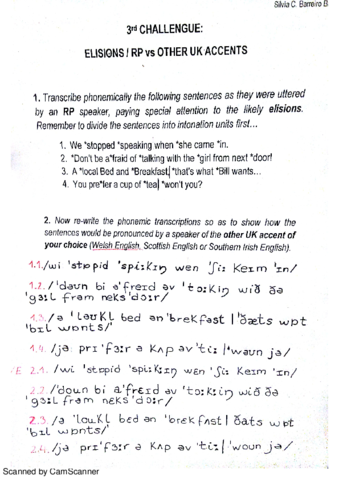 Silvia C. Barreiro B
3rd CHALLENGUE:
ELISIONS / RP vs OTHER UK ACCENTS
1. Transcribe phonemically the following sentences as they were uttered
by an RP speaker, paying special attention to the likely elisions.
Remember to divide the sentences into intonation units first…
1. We *stopped *speaking when *she came *in.
2. *Don't be a*fraid of *talking with the *girl from next *door!
3. A *local Bed and *Breakfast| *that's what *Bill wants…
4. You pre*fer a cup of *tea| *won't you?
2. Now re-write the phonemic transcriptions so as to show how the
sentences would be pronounced by a speaker of the other UK accent of
your choice (Welsh English, Scottish English or Southern Irish English).
1.1./wi ˈstɒpid ˈspiːkiŋ wen ˈʃiː keɪm ˈɪn/
1.2./ˈdəʊn bi əˈfreɪd əv ˈtɔːkiŋ wið ðə
ˈgɜːl frəm neks ˈdɔːr/
1.3./ə ˈləʊkl bed ən ˈbrekfəst | ˈðæts wɒt
ˈbɪl wɒnts/
1.4./jə prɪˈfɜːr ə kʌp əv ˈtiː| ˈwəʊn jə/
E 2.1./wi ˈstɒpid ˈspiːkiŋ wen ˈʃiː keɪm ˈɪn/
2.2./ˈdoun bi əˈfreɪd əv ˈtɔːkiŋ wið ðə
ˈgɜːl frəm neks ˈdɔːr/
2.3./ə ˈloukl bed ən ˈbrekfʌst | ðats wɒt
ˈbɪl wɒnts/
2.4./jə prɪˈfɜːr ə kʌp əv ˈtiː| ˈwoun jə/
Scanned by CamScanner